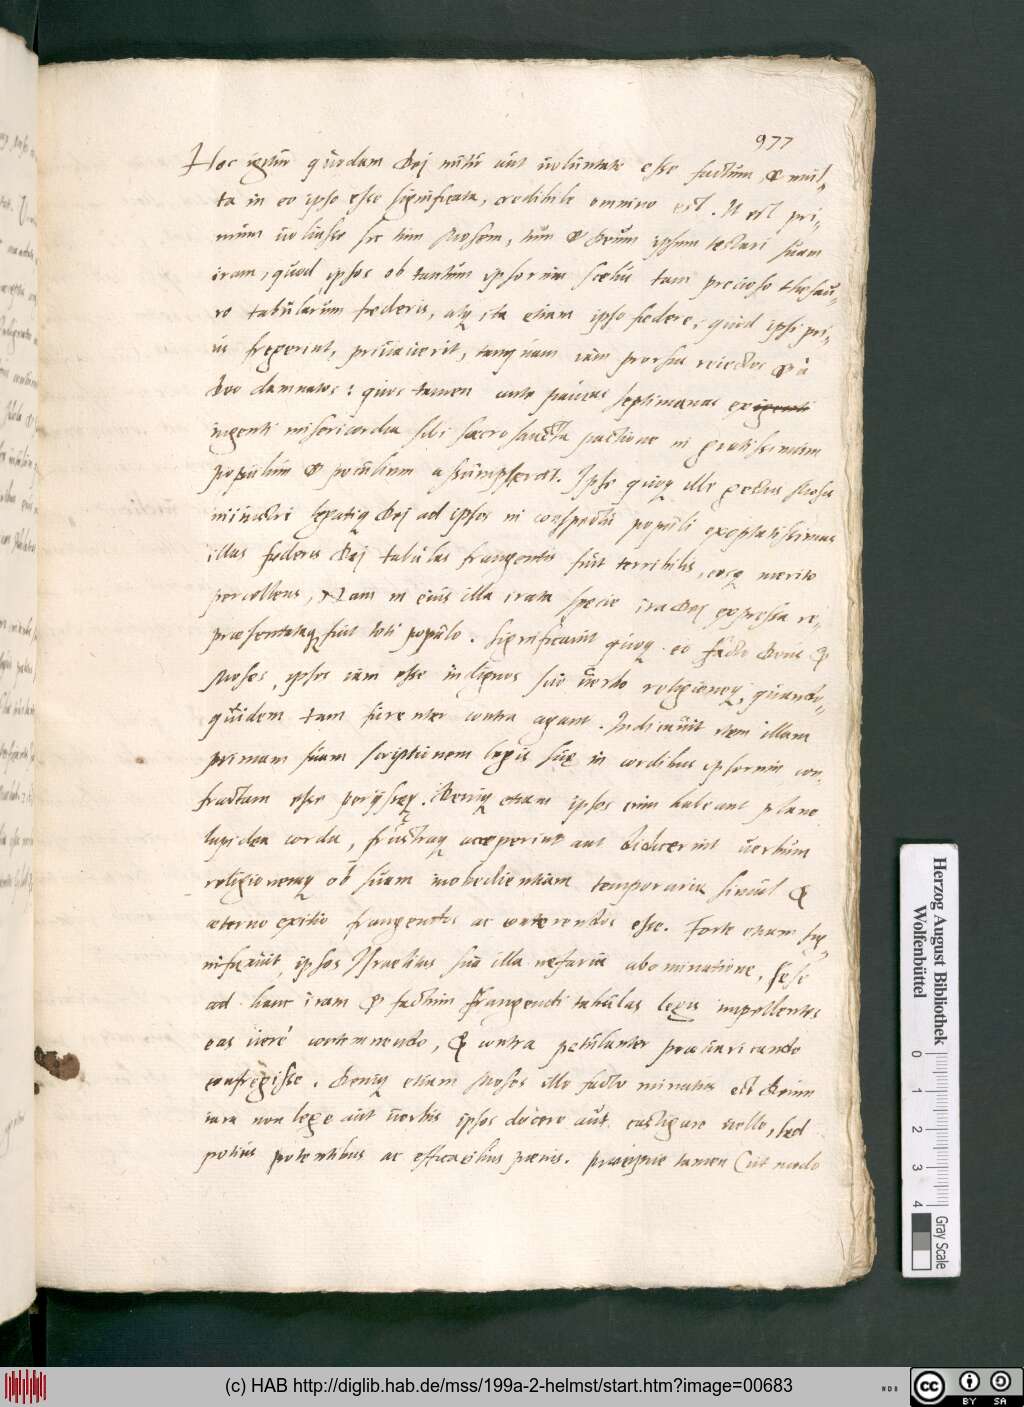 977
Hoc igitur quidam Dei nutu aut voluntate esse factum, & mul-
ta in eo ipso esse significata, credibile omnino est. Ut est pri-
mum voluisse sic tum Mosem, tum & Deum ipsum testari suam
iram, quod ipsos ob tantum ipsorum scelus tam precioso thesau-
ro tabularum foederis, atq ita etiam ipso foedere, quod ipsi pri-
us fregerint, privaverit, tanquam iam prorsus reiectos & à
Deo damnatos: quos tamen ante paucas septimanas
ingenti misericordia sibi sacrosancta pactione in gratissimum
populum & peculium assumpserat. Ipse quoq ille gestus Mosis
ministri legatiq Dei ad ipsos in conspectu populi exoptatissimas
illas foederis Dei tabulas frangentis fuit terribilis, eosq merito
percellens, Nam in eius illa irata specie ira Dei expressa re-
praesentataq fuit toti populo. Significavit quoq eo facto Deus &
Moses, ipsos iam esse indignos suo verbo religioneq, quando-
quidem tam furenter contra agant. Indicavit item illam
primam suam scriptionem legis suę in cordibus ipsorum con-
fractam esse perijsseq. Deniq etiam ipsos cum habeant plane
lapidea corda, frustraq acceperint aut didicerint verbum
religionemq ob suam inobedientiam temporaria simul &
aeterno exitio frangendos ac conterendos esse. Forte etiam sig-
nificavit, ipsos Israelitas sua illa nefaria abominatione, sese
ad hanc iram & factum frangendi tabulas legis impellentes
eas verè contemnendo, & contra petulanter praevaricando
confregisse. Deniq etiam Moses illo facto minatus est Deum
iam non lege aut verbis ipsos docere aut castigare velle, sed
potius potentibus ac efficacibus poenis. praecipue tamen (ut modo
Herzog August Bibliothek
Wolfenbüttel
0 1 2 3 4
Gray Scale
(c) HAB http://diglib.hab.de/mss/199a-2-helmst/start.htm?image=00683
cc BY SA